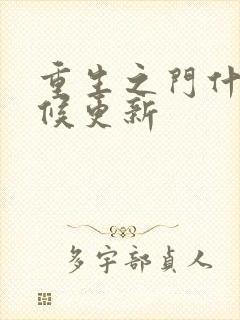 重生之門什
候更新
多宇部貞人